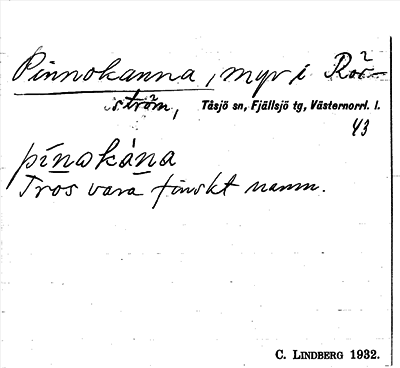 Pinnokanna, myr i Rör-
ström, Tåsjö sn, Fjällsjö tg, Västernorrl. l.
43
pínokàna
Tros vara finskt namn.
C. LINDBERG 1932.